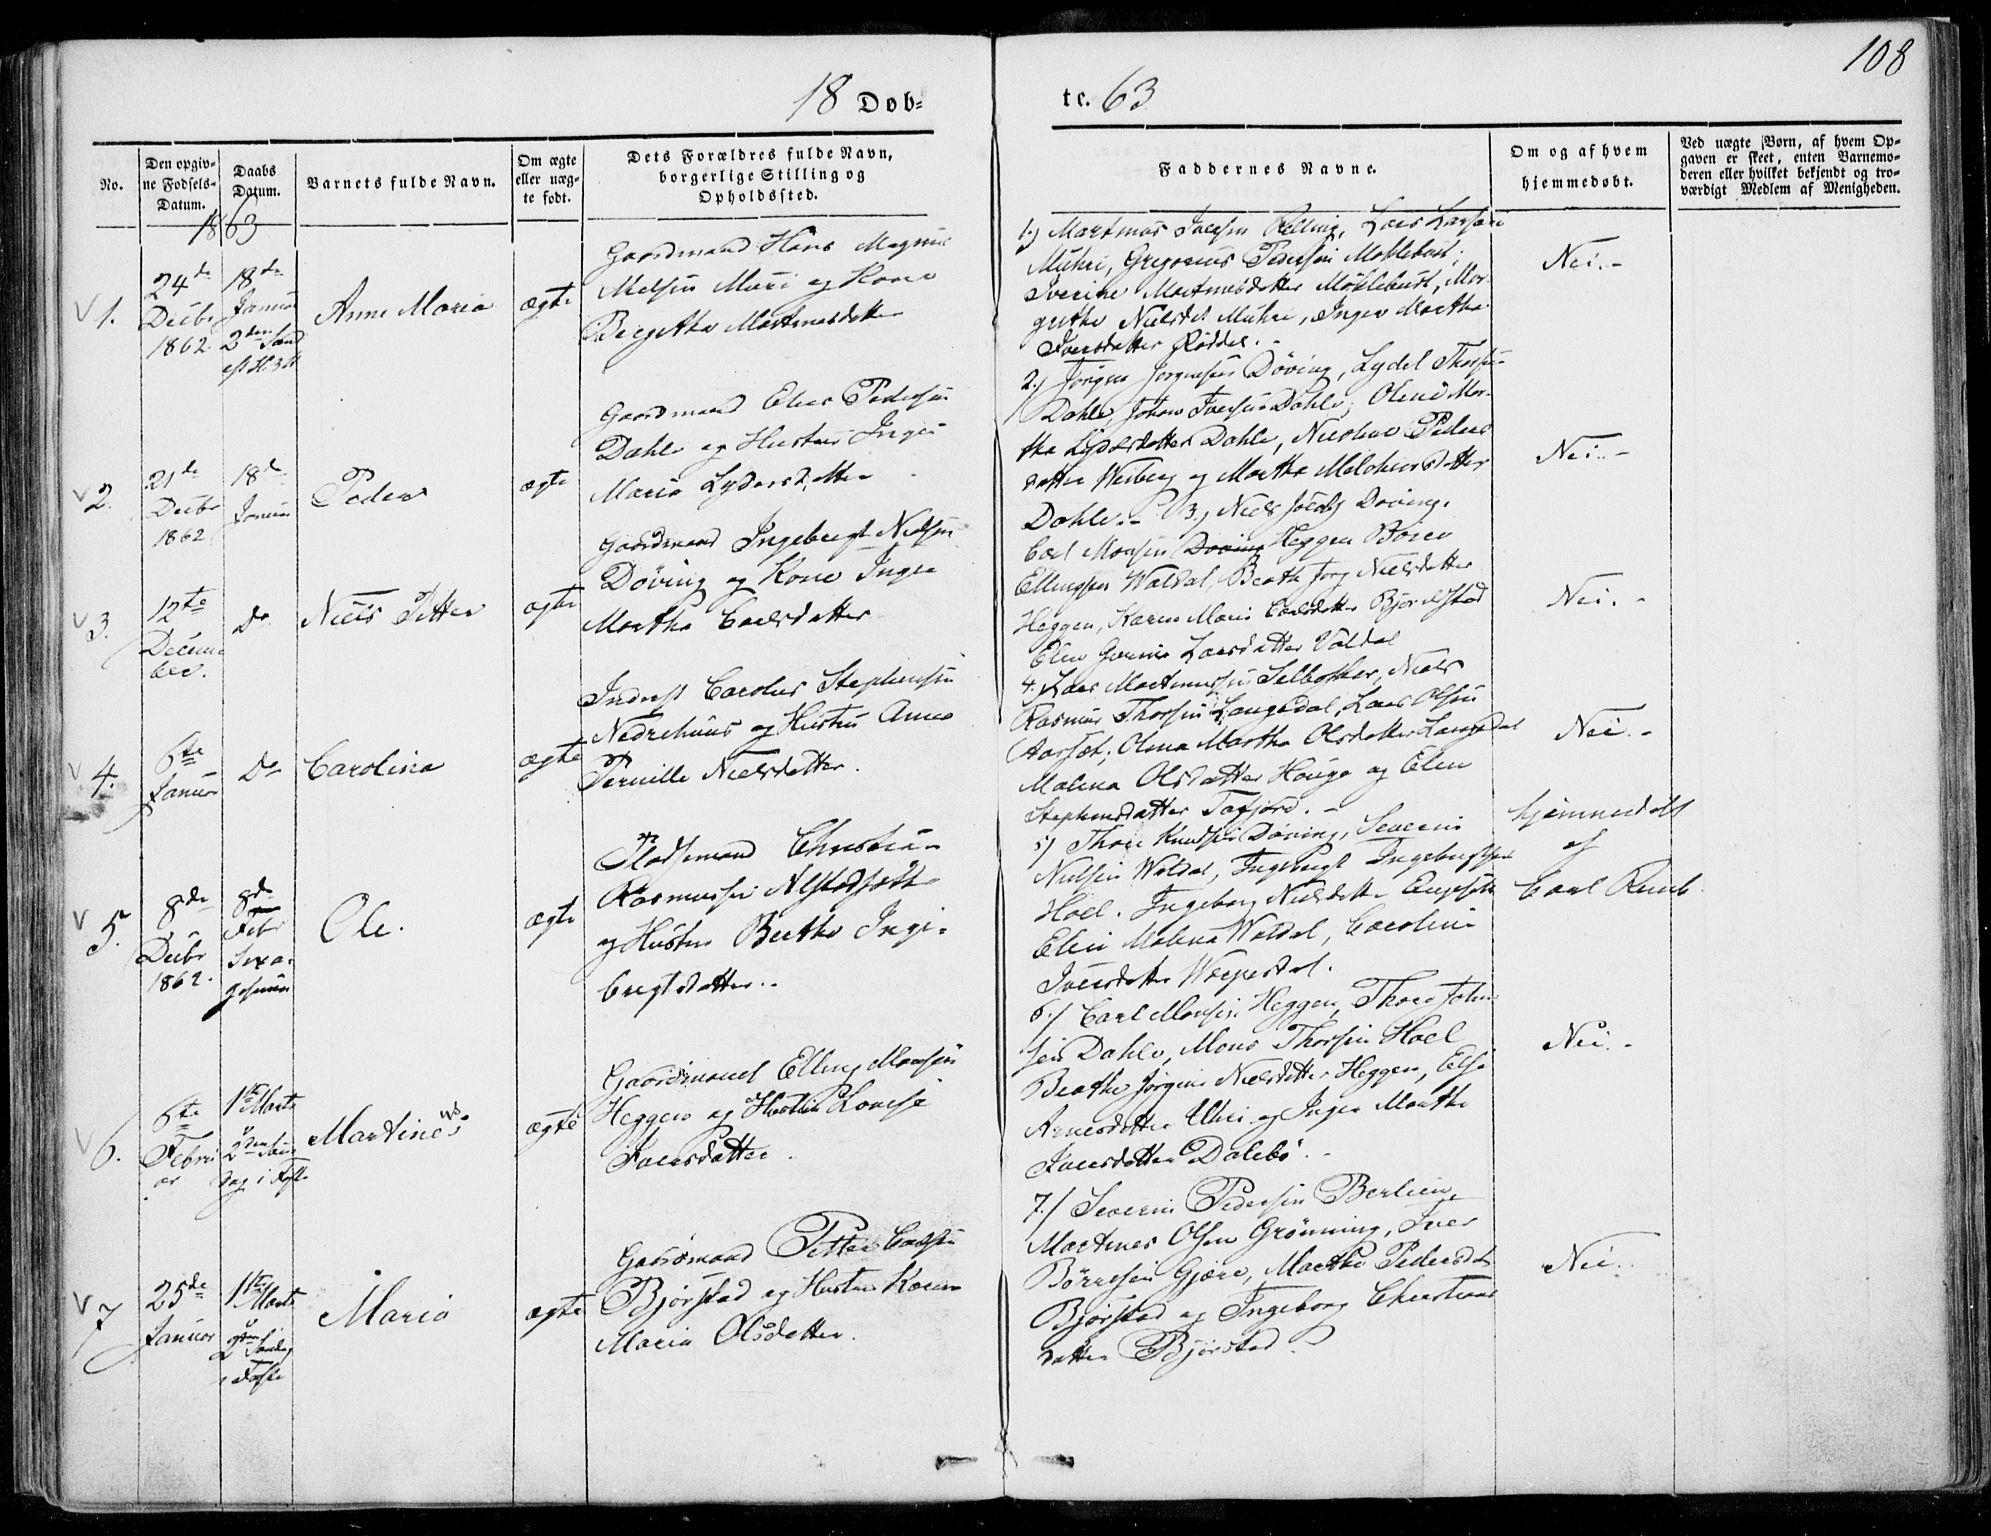 108
18 Døb-
te. 63
No.
Den opgiv-
ne Fødsels-
Datum.
Daabs
Datum.
Barnets fulde Navn.
Om ægte
eller uæg-
te født.
Dets Forældres fulde Navn,
borgerlige Stilling og
Opholdssted.
Faddernes Navne.
Om og af hvem
hjemmedøbt.
Ved uægte Børn, af hvem Op-
gaven er skeet, enten Barnemo-
deren eller hvilket bekjendt og tro-
værdigt Medlem af Menigheden.
1863
1.
24de
Decbr
1862.
18de
Januar
Anne Maria
ægte
Gaardmand Hans Magnus
Nielsen Muri og Kone
Birgethe Martinusdatter
1.) Martinus Iversen Relling, Lars Larsen
Muhri, Gregorius Pedersen Møklebust;
Iverine Martinusdatter Møklebust, Mar-
grethe Nielsdt Muhri, Inger Martha
Iversdatter Rødder.-
Nei.-
2.
21de
Decbr
1862
18de
Januar
Peder
ægte
Gaardmand Elias Pedersen
Dahle og Hustru Inger
Maria Lydersdatter
2.) Jørgen Jørgensen Døving, Lydel Thorsen
Dahle, Johan Iversen Dahle; Oline Mar-
tha Lydersdatter Dahle, Nicoline Peders
datter Weiberg og Martha Melchiorsdatter
Dahle.-
Nei.-
3.
12te
Decem
ber.
Do
Niels Petter
ægte
Gaardmand Ingebrigt Nielsen
Døving og Kone Inger
Martha Carlsdatter
3.) Niels Jacobs Døving,
Carl Monsen Døving Heggen Børre
Ellingsen Waldal, Beathe Jørg Nielsdatter
Heggen, Karen Marie Carlsdatter Bjørstad
Elen Larsdatter Valdal
Nei.-
4.
6te
Januar
Do
Carolina
ægte
Inderst Carolus Stephensen
Nedrehuus og Hustru Anne
Pernille Nielsdatter.
4. Lars Martinussen Selboskar, Niels
Rasmus Thorsen Langedal, Lars Olsen
Aarset; Olina Martha Olsdatter Langedal
Malena Olsdatter Houge og Elen
Stephensdatter Tafjord.-
Nei.-
5.
8de
Decbr
1862.
8de
Febr
Sexa-
gesima
Ole.
ægte
Pladsmand Christen
Rasmussen Alstadsæth
og Hustru Berthe Inge-
brigtsdatter.
5) Thore Knudsen Døving, Severin
Nielsen Waldal, Ingebrigt Ingebrigtsen
Hoel. Ingeborg Nielsdatter
Elen Malena Waldal, Caroline
Iversdatter
hjemmedøbt
af
Carl
6.
6te
Febru
ar
1ste Marts
2den Søn
dag i Faste
Martinus
ægte
Gaardmand Elling Monsen
Heggen og Hustru Lovise
Iversdatter.
6.) Carl Monsen Heggen, Thore Johan
sen Dahle, Mons Thorsen Hoel
Beathe Jørgine Nielsdatter Heggen, Else
Arnesdatter Uhri og Inger Marthe
Iversdatter Dalebø.-
Nei.-
7
25de
Januar
1ste Marts
2den Søndag
i Faste
Maria
ægte
Gaardmand Petter Carlsen
Bjørstad og Hustru Karen
Maria Olsdatter.
7.) Severin Pedersen Berlien
Martinus Olsen Grønning, Iver
Børresen Gjære, Marthe Pedersdat
Bjørstad og Ingeborg Christians
datter Bjørstad.
Nei.